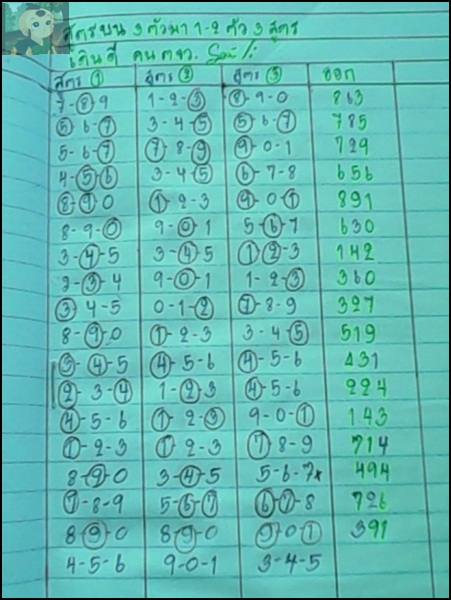 สูตรบน 3 ตัวมา 1-2 ตัว 3 สูตร
เดินดี
สูตร ① สูตร ② สูตร ③ ออก
7-8-9 1-2-3 8-9-0 863
5-6-7 3-4-5 5-6-7 785
5-6-7 7-8-9 9-0-1 729
4-5-6 3-4-5 6-7-8 656
8-9-0 1-2-3 9-0-1 891
8-9-0 9-0-1 5-6-7 630
3-4-5 3-4-5 1-2-3 142
2-3-4 9-0-1 1-2-3 360
3-4-5 0-1-2 7-8-9 327
8-9-0 1-2-3 3-4-5 519
3-4-5 4-5-6 4-5-6 431
2-3-4 1-2-3 4-5-6 224
4-5-6 1-2-3 9-0-1 143
1-2-3 1-2-3 7-8-9 714
8-9-0 3-4-5 5-6-7x 494
7-8-9 5-6-7 6-7-8 726
8-9-0 8-9-0 9-0-1 391
4-5-6 9-0-1 3-4-5